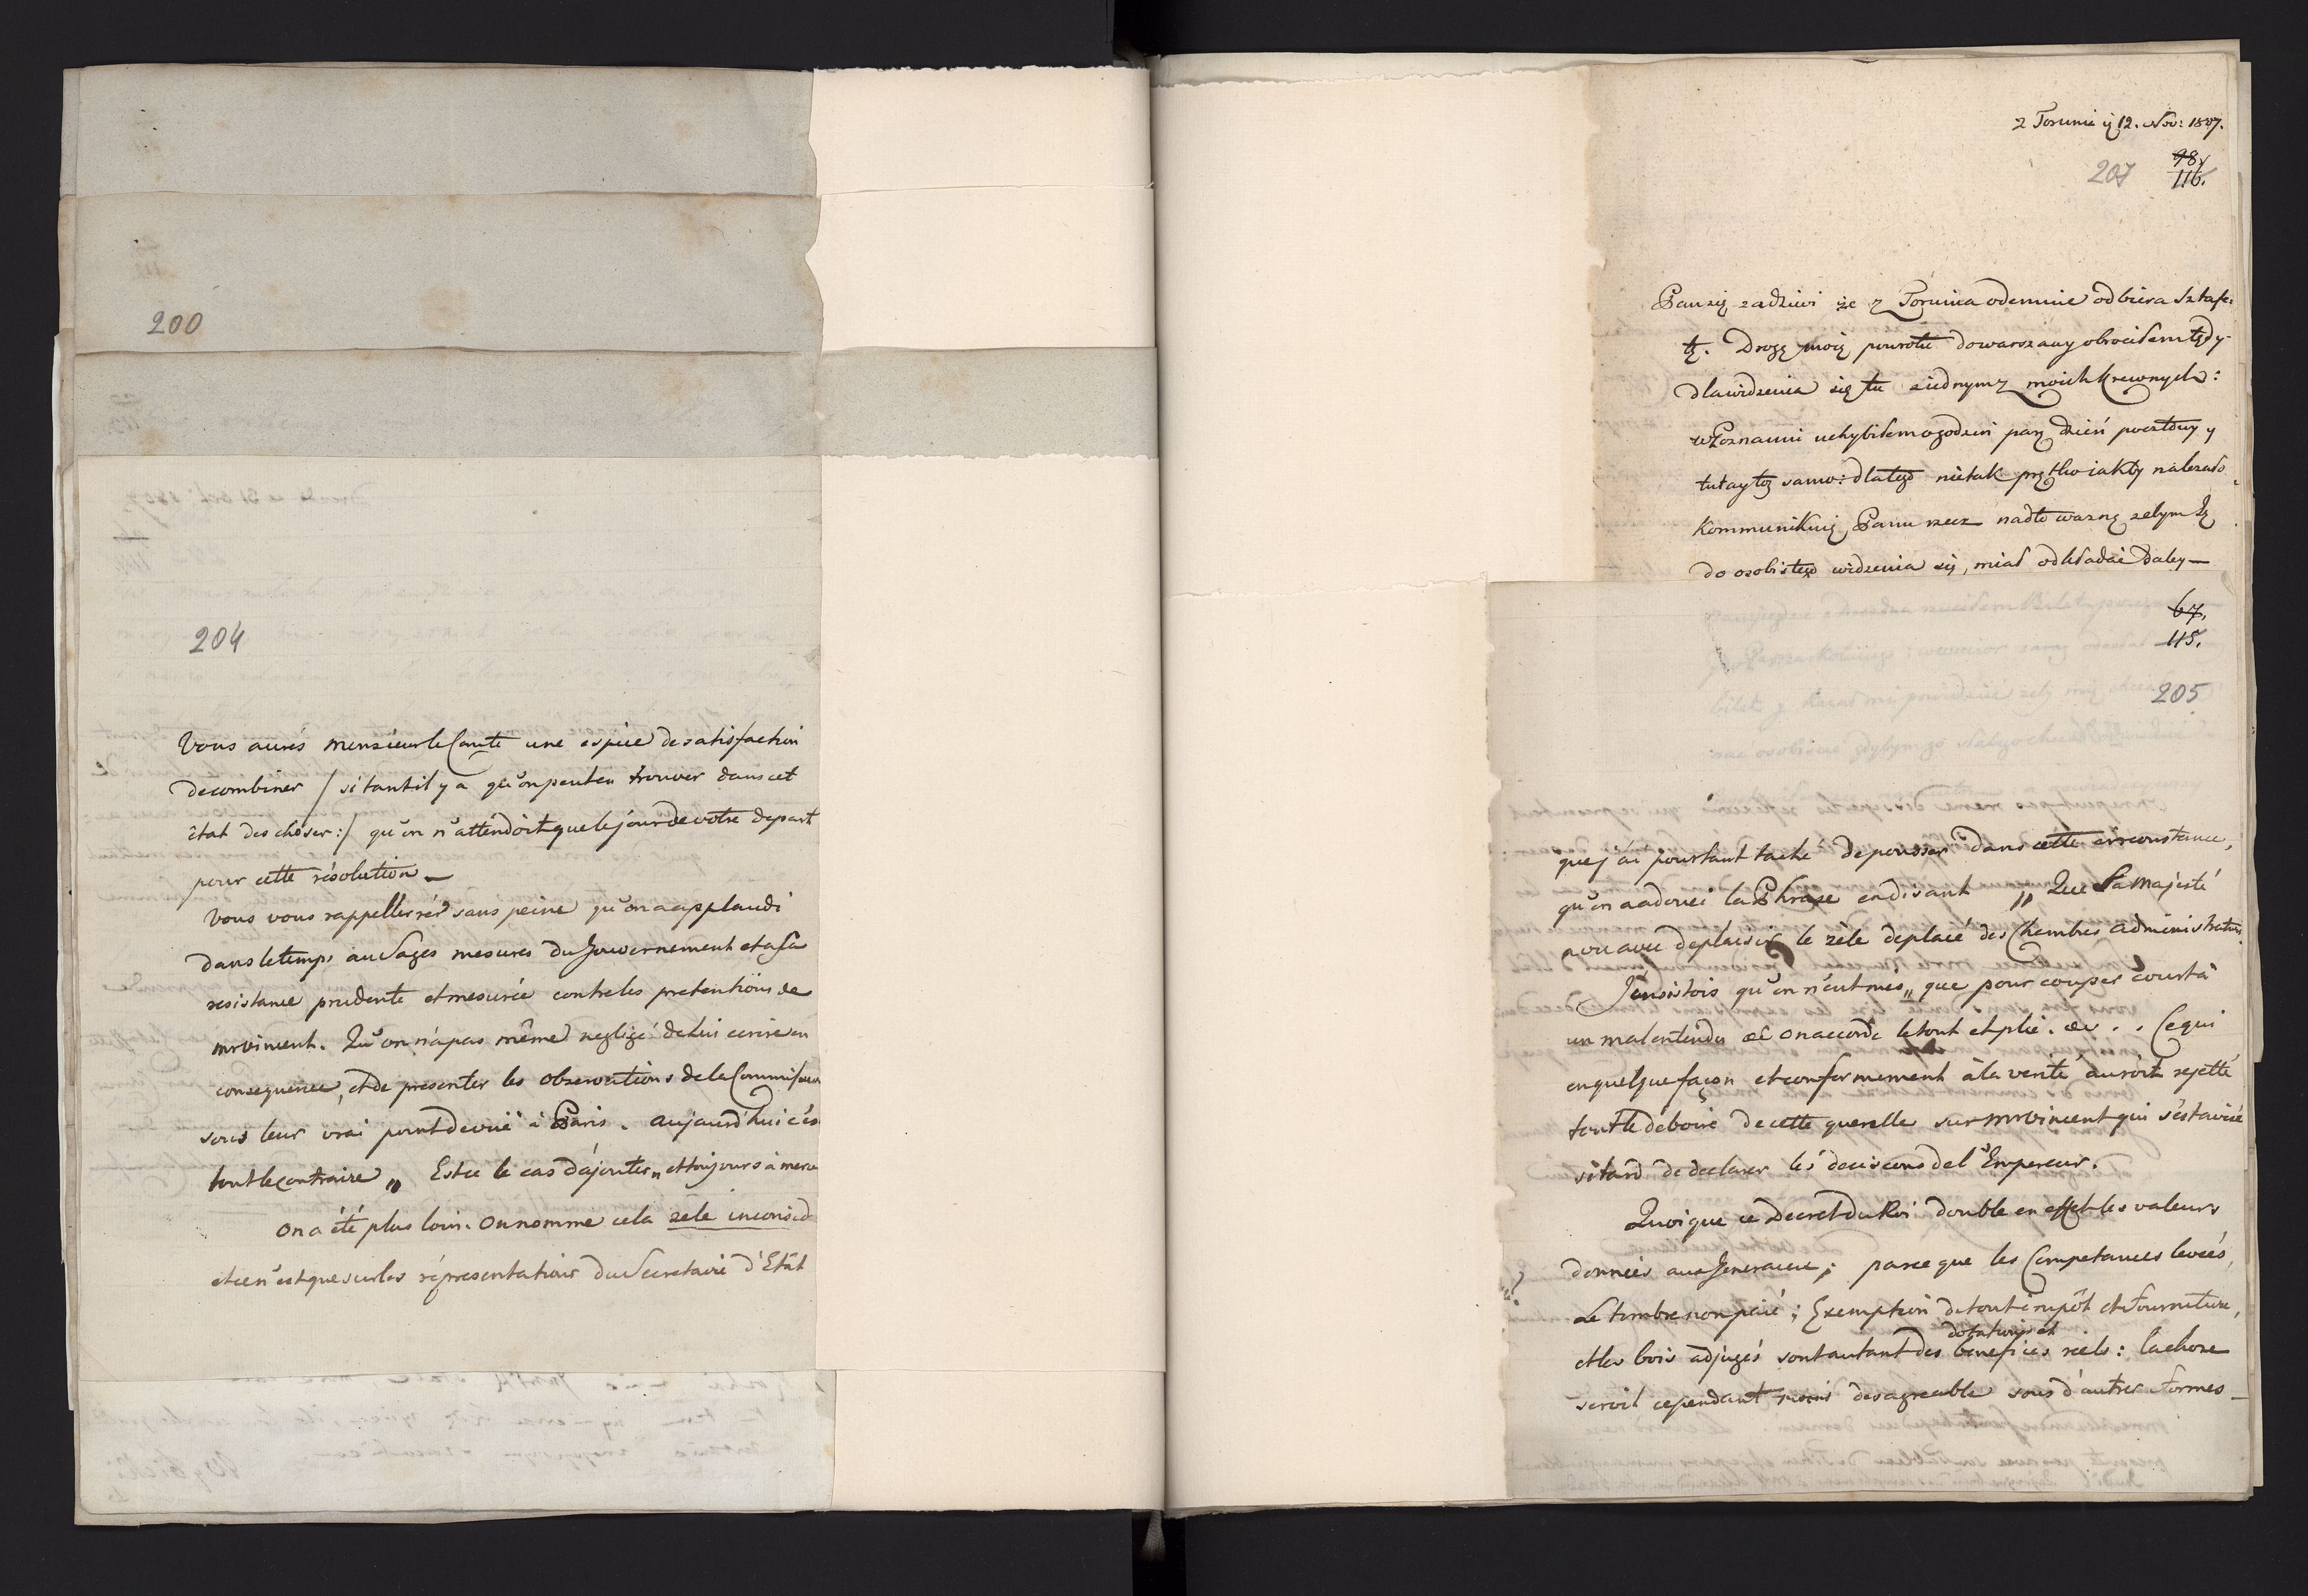 200
204
Vous aurés monsieur le Comte une espèce de satisfaction
de combiner /: si tant il y a qu'on peut en trouver dans cet
état des choses :/ qu'on n'attendoit que le jour de votre depart
pour cette résolution —
Vous vous rappellerés sans peine qu'on a applaudi
dans le temps au sages mesures du Gouvernement et a sa
resistance prudente et mesurée contre les pretentions de
mr vincent. Qu'on n'a pas même negligé de lui ecrire en
consequence, et de presenter les observations de la Commission
sous leur vrai point de vuë à Paris. aujourd'hui c'es
tout le contraire „ Est ce le cas d'ajouter „ et toujours à merve
on a été plus loin. On nomme cela zele inconsid
et ce n'est que sur les répresentations du Secretaire d'Etat
z Torunia ij 12. Nov: 1807.
207
98
116.
Pan się zadziwi że z Torunia odemnie odbiera sztafe-
tę. Drogę moię powrotu do warszawy obrociłem tędy
dla widzenia się tu z iednym z moich krewnych:
w Poznaniu uchybiłem o godzin parę dzień pocztowy y
tutay toż samo: dla tego nie tak prętko iakby należało
kommunikuię Panu rzecz nadto ważną żebym Ią
do osobistego widzenia się, miał odkładać daley —
67.
115.
205
que j'ai pourtant taché de pousser dans cette circonstance,
qu'on a adouci la Phrase en disant „ Que Sa Majesté
a vu avec deplaisir le zèle deplacé des Chambres administratives
J'insistois qu'on n'eut mis „ que pour couper court à
un malentendu &c on accorde le tout et plié. &c . . Ce qui
en quelque façon et conformement à la verité auroit rejetté
tout le deboire de cette querelle sur mr vincent qui s'est avisé
si tard de declarer les decisions de l'Empereur.
Quoique ce Decret du Roi double en effet les valeurs
données aux Generaux; parce que les Competances levées,
le timbre non paié; Exemption de tout impôt et fourniture,
dotations et
et les bois adjugés sont autant des benefices réels: la chose
seroit cependant moins desagreable sous d'autres formes —